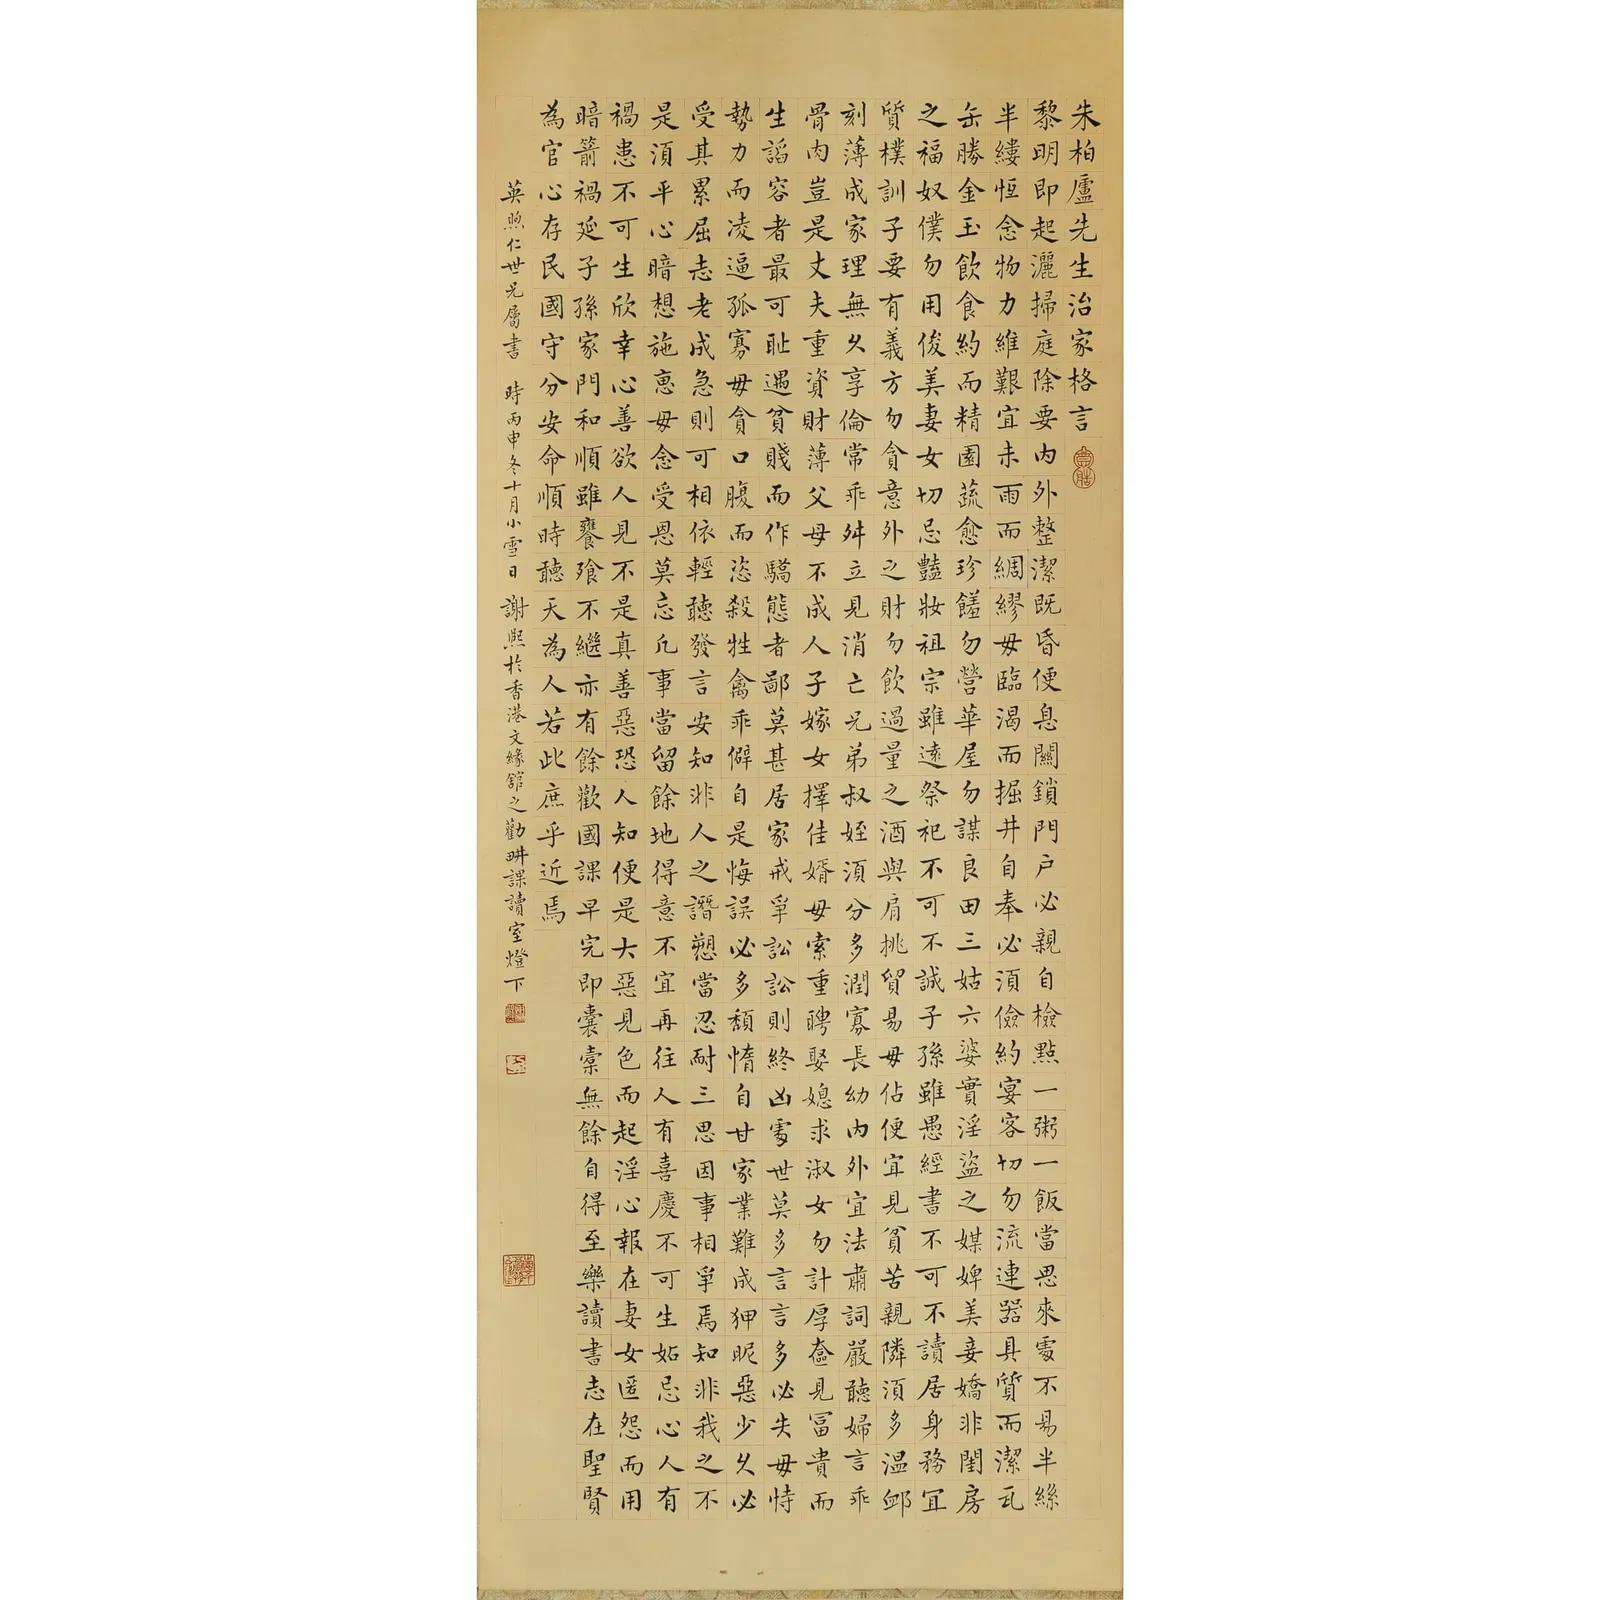 朱柏廬先生治家格言
黎明即起灑掃庭除要內外整潔既昏便息關鎖門户必親自檢點一粥一飯當思來處不易半絲
半縷恆念物力維艱宜未雨而綢繆毋臨渴而掘井自奉必須儉約宴客切勿流連器具質而潔瓦
缶勝金玉飲食約而精園蔬愈珍饈勿營華屋勿謀良田三姑六婆實淫盜之媒婢美妾嬌非閨房
之福奴僕勿用俊美妻女切忌豔妝祖宗雖遠祭祀不可不誠子孫雖愚經書不可不讀居身務宜
質樸訓子要有義方勿貪意外之財勿飲過量之酒與肩挑貿易毋佔便宜見貧苦親隣須多温卹
刻薄成家理無久享倫常乖舛立見消亡兄弟叔姪須分多潤寡長幼內外宜法肅詞嚴聽婦言乖
骨肉豈是丈夫重資財薄父母不成人子嫁女擇佳婿毋索重聘娶媳求淑女勿計厚奩見富貴而
生諂容者最可恥遇貧賤而作驕態者鄙莫甚居家戒爭訟訟則終凶處世莫多言言多必失毋恃
勢力而凌逼孤寡毋貪口腹而恣殺牲禽乖僻自是悔誤必多頹惰自甘家業難成狎昵惡少久必
受其累屈志老成急則可相依輕聽發言安知非人之譖愬當忍耐三思因事相爭焉知非我之不
是須平心暗想施惠毋念受恩莫忘凡事當留餘地得意不宜再往人有喜慶不可生妬忌心人有
禍患不可生欣幸心善欲人見不是真善惡恐人知便是大惡見色而起淫心報在妻女匿怨而用
暗箭禍延子孫家門和順雖饔飧不繼亦有餘歡國課早完即囊橐無餘自得至樂讀書志在聖賢
為官心存民國守分安命順時聽天為人若此庶乎近焉
英煦仁世兄屬書 時丙申冬十月小雪日 謝熙於香港文緣舘之勸畊課讀室燈下